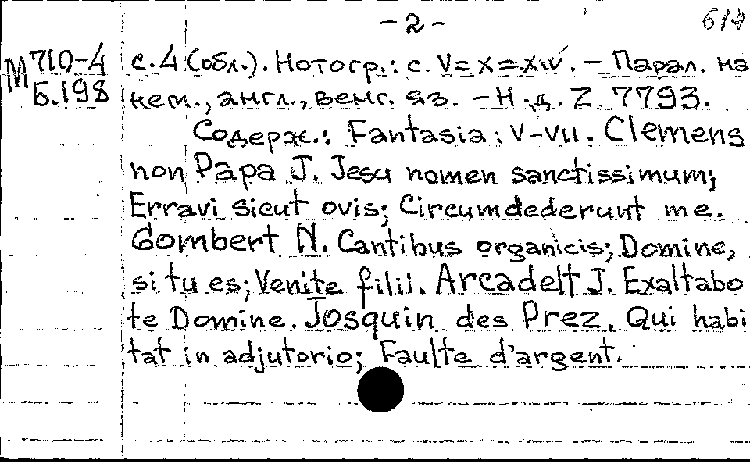 - 2 -
М 710-4
Б.198
с.4 (обл.). Нотогр.: с. V=X=XIV. – Парал. на
нем., англ., венг. яз. – Н.д. Z 7793.
Содерж.: Fantasia: V-VII. Clemens
non Papa J. Jesu nomen sanctissimum;
Erravi sicut ovis; Circumdederunt me.
Gombert N. Cantibus organicis; Domine,
si tu es; Venite filii. Arcadelt J. Exaltabo
te Domine. Josquin des Prez. Qui habi
tat in adjutorio; Faulte d'argent.